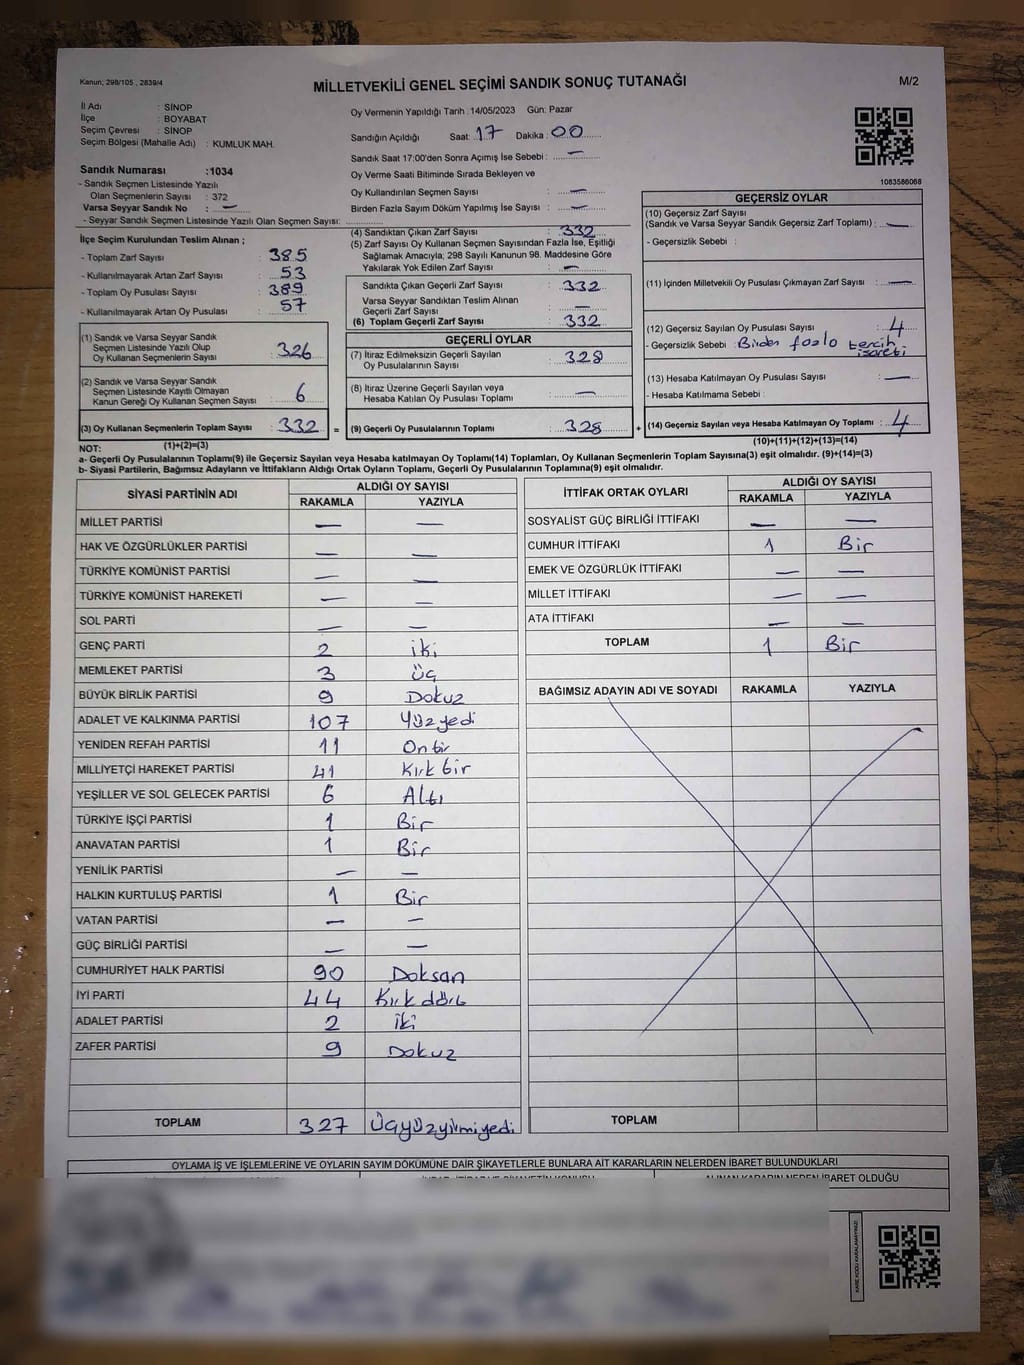 Kanun; 298/105 , 2839/4
MİLLETVEKİLİ GENEL SEÇİMİ SANDIK SONUÇ TUTANAĞI
M/2
İl Adı : SİNOP
İlçe : BOYABAT
Seçim Çevresi : SİNOP
Seçim Bölgesi (Mahalle Adı) : KUMLUK MAH.
Oy Vermenin Yapıldığı Tarih : 14/05/2023 Gün: Pazar
Sandığın Açıldığı Saat: 17 Dakika : 00
Sandık Saat 17:00'den Sonra Açımış İse Sebebi : —
Oy Verme Saati Bitiminde Sırada Bekleyen ve
Oy Kullandırılan Seçmen Sayısı : —
Birden Fazla Sayım Döküm Yapılmış İse Sayısı : —
Sandık Numarası :1034
- Sandık Seçmen Listesinde Yazılı
Olan Seçmenlerin Sayısı : 372
Varsa Seyyar Sandık No : —
- Seyyar Sandık Seçmen Listesinde Yazılı Olan Seçmen Sayısı:
1083586068
İlçe Seçim Kurulundan Teslim Alınan ;
- Toplam Zarf Sayısı : 385
- Kullanılmayarak Artan Zarf Sayısı : 53
- Toplam Oy Pusulası Sayısı : 389
- Kullanılmayarak Artan Oy Pusulası : 57
(1) Sandık ve Varsa Seyyar Sandık
Seçmen Listesinde Yazılı Olup
Oy Kullanan Seçmenlerin Sayısı : 326
(2) Sandık ve Varsa Seyyar Sandık
Seçmen Listesinde Kayıtlı Olmayan
Kanun Gereği Oy Kullanan Seçmen Sayısı : 6
(3) Oy Kullanan Seçmenlerin Toplam Sayısı : 332 =
(1)+(2)=(3)
(4) Sandıktan Çıkan Zarf Sayısı : 332
(5) Zarf Sayısı Oy Kullanan Seçmen Sayısından Fazla İse, Eşitliği
Sağlamak Amacıyla; 298 Sayılı Kanunun 98. Maddesine Göre
Yakılarak Yok Edilen Zarf Sayısı : —
Sandıkta Çıkan Geçerli Zarf Sayısı : 332
Varsa Seyyar Sandıktan Teslim Alınan
Geçerli Zarf Sayısı : —
(6) Toplam Geçerli Zarf Sayısı : 332
GEÇERLİ OYLAR
(7) İtiraz Edilmeksizin Geçerli Sayılan
Oy Pusulalarının Sayısı : 328
(8) İtiraz Üzerine Geçerli Sayılan veya
Hesaba Katılan Oy Pusulası Toplamı : —
(9) Geçerli Oy Pusulalarının Toplamı : 328 +
GEÇERSİZ OYLAR
(10) Geçersiz Zarf Sayısı
(Sandık ve Varsa Seyyar Sandık Geçersiz Zarf Toplamı) : —
- Geçersizlik Sebebi :
(11) İçinden Milletvekili Oy Pusulası Çıkmayan Zarf Sayısı : —
(12) Geçersiz Sayılan Oy Pusulası Sayısı : 4
- Geçersizlik Sebebi : Birden fazla tercih
işareti
(13) Hesaba Katılmayan Oy Pusulası Sayısı : —
- Hesaba Katılmama Sebebi :
(14) Geçersiz Sayılan veya Hesaba Katılmayan Oy Toplamı : 4
(10)+(11)+(12)+(13)=(14)
NOT:
a- Geçerli Oy Pusulalarının Toplamı(9) ile Geçersiz Sayılan veya Hesaba katılmayan Oy Toplamı(14) Toplamları, Oy Kullanan Seçmenlerin Toplam Sayısına(3) eşit olmalıdır. (9)+(14)=(3)
b- Siyasi Partilerin, Bağımsız Adayların ve İttifakların Aldığı Ortak Oyların Toplamı, Geçerli Oy Pusulalarının Toplamına(9) eşit olmalıdır.
SİYASİ PARTİNİN ADI ALDIĞI OY SAYISI
RAKAMLA YAZIYLA
MİLLET PARTİSİ — —
HAK VE ÖZGÜRLÜKLER PARTİSİ — —
TÜRKİYE KOMÜNİST PARTİSİ — —
TÜRKİYE KOMÜNİST HAREKETİ — —
SOL PARTİ — —
GENÇ PARTİ 2 iki
MEMLEKET PARTİSİ 3 üç
BÜYÜK BİRLİK PARTİSİ 9 Dokuz
ADALET VE KALKINMA PARTİSİ 107 Yüzyedi
YENİDEN REFAH PARTİSİ 11 Onbir
MİLLİYETÇİ HAREKET PARTİSİ 41 Kırk bir
YEŞİLLER VE SOL GELECEK PARTİSİ 6 Altı
TÜRKİYE İŞÇİ PARTİSİ 1 Bir
ANAVATAN PARTİSİ 1 Bir
YENİLİK PARTİSİ — —
HALKIN KURTULUŞ PARTİSİ 1 Bir
VATAN PARTİSİ — —
GÜÇ BİRLİĞİ PARTİSİ — —
CUMHURİYET HALK PARTİSİ 90 Doksan
İYİ PARTİ 44 Kırk dört
ADALET PARTİSİ 2 iki
ZAFER PARTİSİ 9 Dokuz
TOPLAM 327 Üçyüzyirmiyedi
İTTİFAK ORTAK OYLARI ALDIĞI OY SAYISI
RAKAMLA YAZIYLA
SOSYALİST GÜÇ BİRLİĞİ İTTİFAKI — —
CUMHUR İTTİFAKI 1 Bir
EMEK VE ÖZGÜRLÜK İTTİFAKI — —
MİLLET İTTİFAKI — —
ATA İTTİFAKI — —
TOPLAM 1 Bir
BAĞIMSIZ ADAYIN ADI VE SOYADI RAKAMLA YAZIYLA
TOPLAM
OYLAMA İŞ VE İŞLEMLERİNE VE OYLARIN SAYIM DÖKÜMÜNE DAİR ŞİKAYETLERLE BUNLARA AİT KARARLARIN NELERDEN İBARET BULUNDUKLARI
ALINAN KARARIN NEDEN İBARET OLDUĞU
KARE KODU KARALAMAYINIZ!